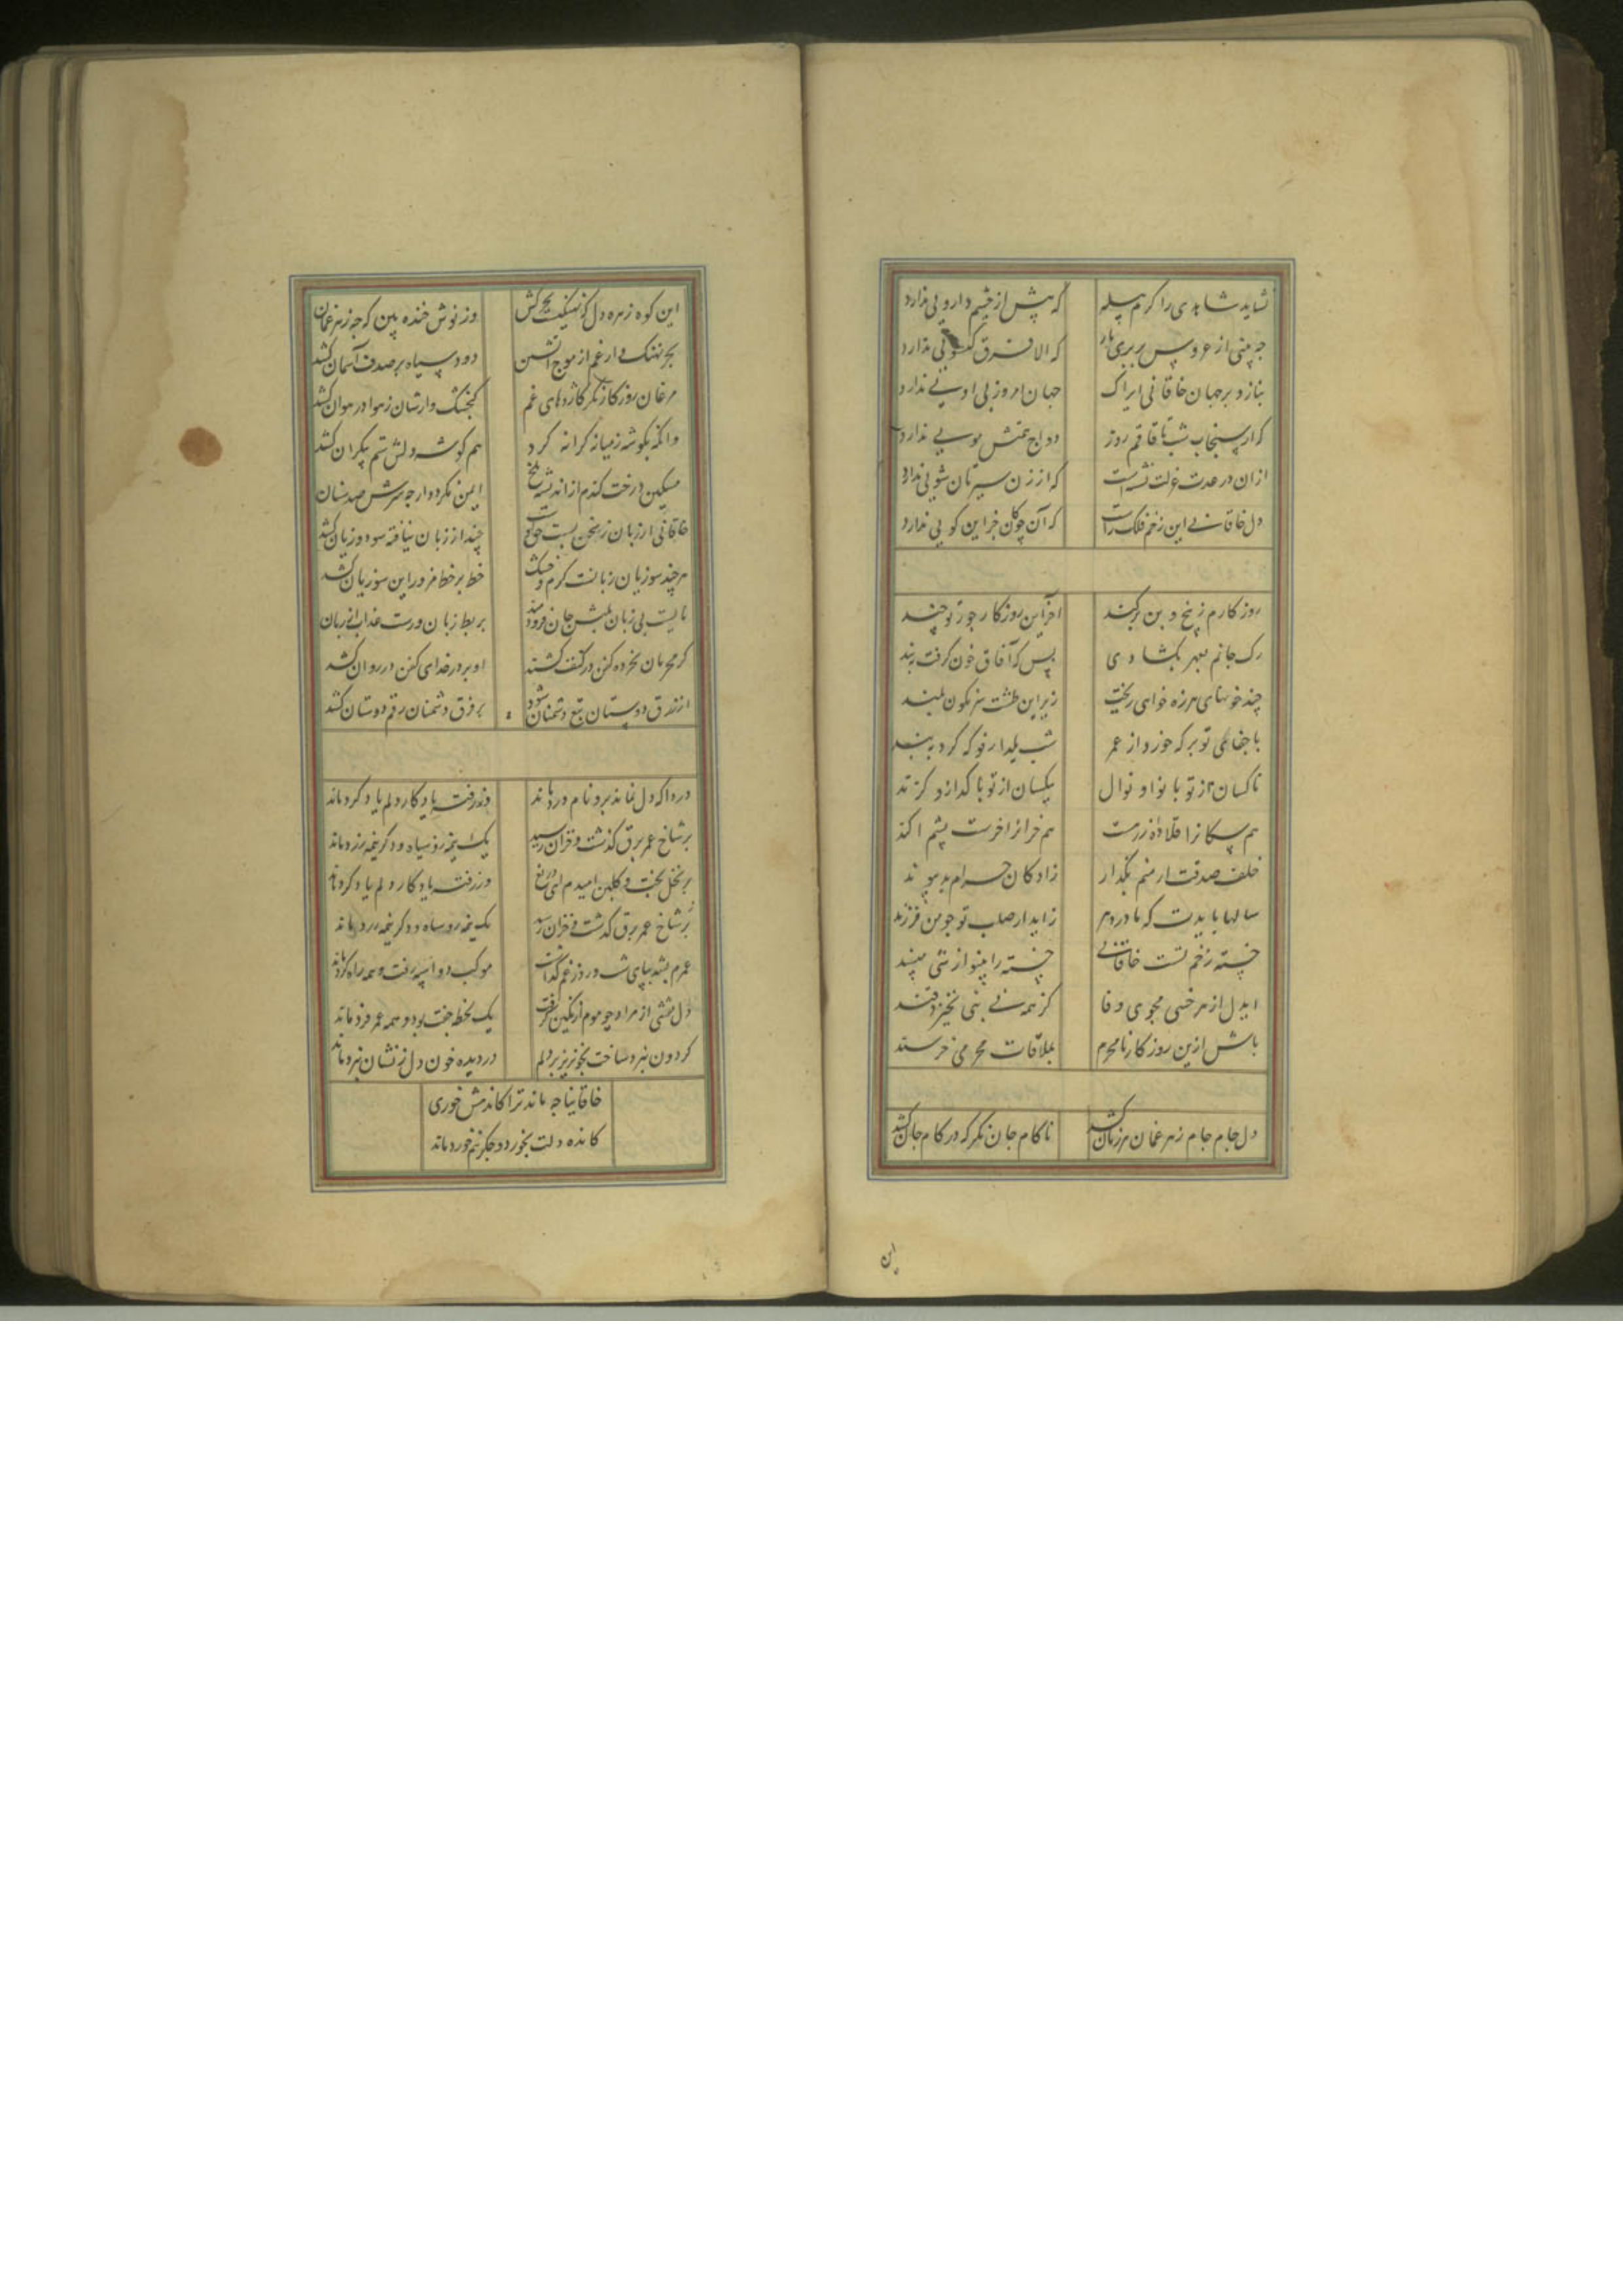 نشاید شاهدی را کرم پیله که پیش از چشم دارویی ندارد
چه بینی از عروس بربری ناز که الا فرق گیسویی ندارد
بنازد بر جهان خاقانی ایراک جهان امروز بی او یی ندارد
که ار سنجاب شب تا قاقم روز دواج همتش مویی ندارد
ازان در عدت عزلت نشست که از زن سیرتان شویی ندارد
دل خاقانی این زخم فلک راست که آن چوکان جز این کویی ندارد
روز کارم ز بیخ و بن بر کند اخر این روز کار جور تو چند
رک جانم بهر بکشادی بس که آفاق خون کرفت ببند
چند خونهای هرزه خواهی ریخت زیر این طشت سرنکون بلند
با جفاهای تو بر که خورد از عمر شب یلدا رفو که کرد پرند
ناکسان از تو با نوا و نوال بیکسان از تو با کداز و کزند
هم سکانرا قلاده زرست هم خرانرا خرست پشم اکند
خلف صدقت ار منم بکذار زادکان حرام بد پیوند
سالها بایدت که مادر دهر زاید از صلب تو چو من فرزند
خسته زخم تست خاقانی خسته را بینوا ازین مپسند
ای دل از هر خسی مجوی وفا کز همه نی بنی نخیزد قند
باش ازین روز کار نامحرم بملاقات محرمی خرسند
دل جام جام زهر غمان هر زمان کشد ناکام جان نکر که در کام جان کشد
این
این کوه زهره دل که نهنکیست بحرکش وز نوش خنده بین که چه زهر غمان
بحر نهنک دار غم از موج آتشین دود سیاه بر صدف آسمان کشد
مرغان روز کار نکر کاژدهای غم کنجشک وارشان ز هوا در هوان کشد
وانکه بکوشه ز میانه کرانه کرد هم کوشه دلش ستم بیکران کشد
مسکین درخت کندم از اندیشه ملخ ایمن نکردد ار چه سرش صد سنان
خاقانی از زبان ز سخن بست حق اوست چند از زبان نیافته سود و زیان کشد
هر چند سوزیان زبانست کرم و خشک خط بر خط مزور این سوزیان کشد
تا لیست بی زبان بلبش جان فرو دمند بربط زبان ورست عذاب از زبان
کر محرمان بخرده کفن در کتف کشند او بر در خدای کفن در روان کشد
از فرق دوستان تیغ دشمنان شود بر فرق دشمنان رقم دوستان کشد
دردا که دل نماند برو نام درد ماند وز رفت یاد کار دلم یاد کرد ماند
بر شاخ عمر برق کذشت و خزان رسید یک نیمه رو سیاه و دکر نیمه زرد ماند
بر نخل بخت و کلبن امیدم ای دریغ وز رفت یاد کار دلم یاد کرد ماند
بر شاخ عمر برق کذشت و خزان رسید یک نیمه رو سیاه و دکر نیمه زرد ماند
عمرم بشد بپای شب و روز غم کذاشت موکب دو اسپه رفت و همه راه کرد ماند
دل نقشی از مراد چو موم از نکین کرفت یک لحظه جفت بود و همه عمر فرد ماند
کردون نبرد ساخت بخونریز بر دلم در دیده خون دل ز نشان نبرد ماند
خاقانیا چه ماند ترا کاندهش خوری
کانده دلت بخورد و جکر نیم خورد ماند